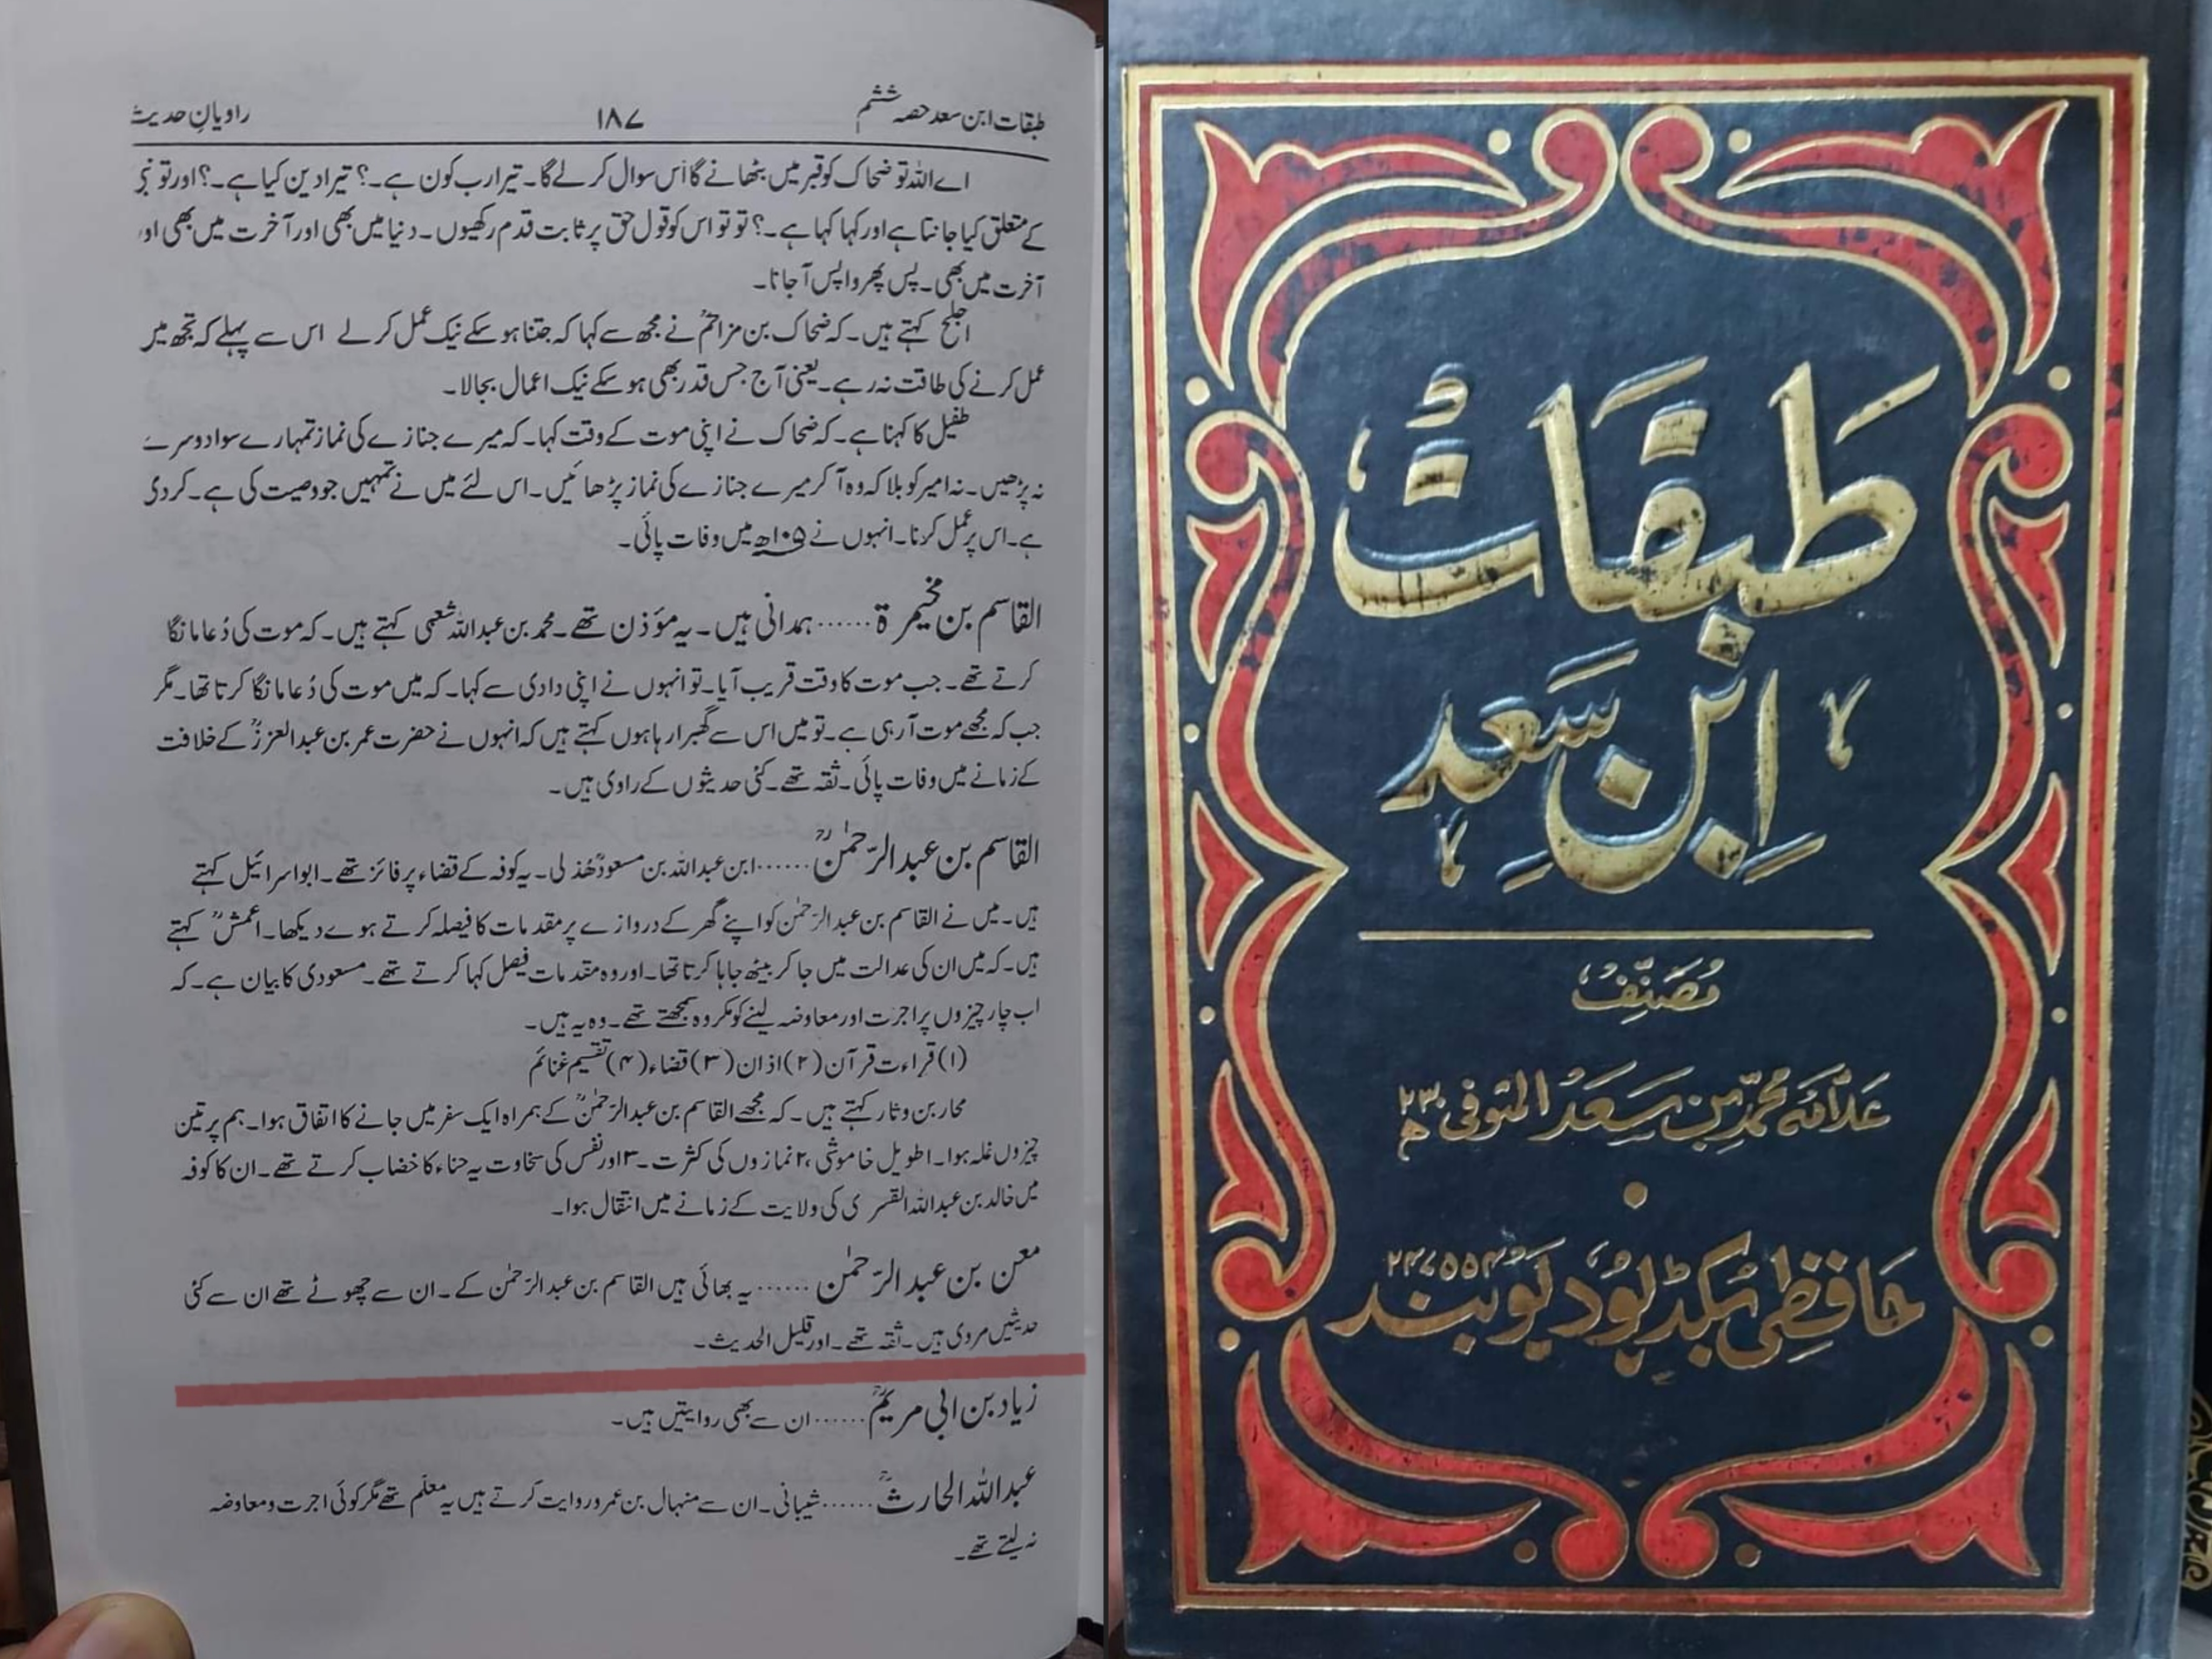 طبقات ابن سعد حصہ ششم
۱۸۷
راویانِ حدیث
اے اللہ تو ضحاک کو قبر میں بٹھانے گا اس سوال کر لے گا۔ تیرا رب کون ہے۔؟ تیرا دین کیا ہے۔؟ اور تو
کے متعلق کیا جانتا ہے اور کہا کہا ہے۔؟ تو تو اس کو قول حق پر ثابت قدم رکھیوں۔ دنیا میں بھی اور آخرت میں بھی اور
آخرت میں بھی۔ پس پھر واپس آ جانا۔
اجلح کہتے ہیں۔ کہ ضحاک بن مزاحمؒ نے مجھ سے کہا کہ جتنا ہو سکے نیک عمل کر لے اس سے پہلے کہ تجھ میں
عمل کرنے کی طاقت نہ رہے۔ یعنی آج جس قدر بھی ہو سکے نیک اعمال بجالا۔
طفیل کا کہنا ہے۔ کہ ضحاک نے اپنی موت کے وقت کہا۔ کہ میرے جنازے کی نماز تمہارے سوا دوسرے
نہ پڑھیں۔ نہ امیر کو بلا کہ وہ آ کر میرے جنازے کی نماز پڑھائیں۔ اس لئے میں نے تمہیں جو وصیت کی ہے۔ کر دی
ہے۔ اس پر عمل کرنا۔ انہوں نے ۱۰۵ھ میں وفات پائی۔
القاسم بن مخیمرۃ...... ہمدانی ہیں۔ یہ مؤذن تھے۔ محمد بن عبداللہ شعمی کہتے ہیں۔ کہ موت کی دُعا مانگا
کرتے تھے۔ جب موت کا وقت قریب آیا۔ تو انہوں نے اپنی دادی سے کہا۔ کہ میں موت کی دُعا مانگا کرتا تھا۔ مگر
جب کہ مجھے موت آ رہی ہے۔ تو میں اس سے گھبرا رہا ہوں کہتے ہیں کہ انہوں نے حضرت عمر بن عبدالعزیزؒ کے خلافت
کے زمانے میں وفات پائی۔ ثقہ تھے۔ کئی حدیثوں کے راوی ہیں۔
القاسم بن عبدالرّحمٰنؒ...... ابن عبداللہ بن مسعودؓ ھُذلی۔ یہ کوفہ کے قضاء پر فائز تھے۔ ابو اسرائیل کہتے
ہیں۔ میں نے القاسم بن عبدالرّحمٰن کو اپنے گھر کے دروازے پر مقدمات کا فیصلہ کرتے ہوے دیکھا۔ اعمشؒ کہتے
ہیں۔ کہ میں ان کی عدالت میں جا کر بیٹھ جاہا کرتا تھا۔ اور وہ مقدمات فیصل کہا کرتے تھے۔ مسعودی کا بیان ہے۔ کہ
اب چار چیزوں پر اجرت اور معاوضہ لینے کو مکروہ سمجھتے تھے۔ وہ یہ ہیں۔
(۱) قراءت قرآن (۲) اذان (۳) قضاء (۴) تقسیم غنائم
محار بن وثار کہتے ہیں۔ کہ مجھے القاسم بن عبدالرّحمٰنؒ کے ہمراہ ایک سفر میں جانے کا اتفاق ہوا۔ ہم پر تین
چیزوں غلہ ہوا۔ ۱ طویل خاموشی، ۲ نمازوں کی کثرت۔ ۳ اور نفس کی سخاوت یہ حناء کا خضاب کرتے تھے۔ ان کا کوفہ
میں خالد بن عبداللہ القسری کی ولایت کے زمانے میں انتقال ہوا۔
معن بن عبدالرّحمٰن...... یہ بھائی ہیں القاسم بن عبدالرّحمٰن کے۔ ان سے چھوٹے تھے ان سے کئی
حدیثیں مروی ہیں۔ ثقہ تھے۔ اور قلیل الحدیث۔
زیاد بن ابی مریمؒ...... ان سے بھی روایتیں ہیں۔
عبداللہ الحارثؒ...... شیبانی۔ ان سے منہال بن عمرو روایت کرتے ہیں یہ معلّم تھے مگر کوئی اجرت ومعاوضہ
نہ لیتے تھے۔
طَبقَاتُ
اِبنِ سَعد
مُصَنِّفُ
عَلّامَہ محمّد بن سَعَدُ المتوفی ۲۳۰ھ
حَافظی بُکڈپُو دیوبند ۲۴۷۵۵۴